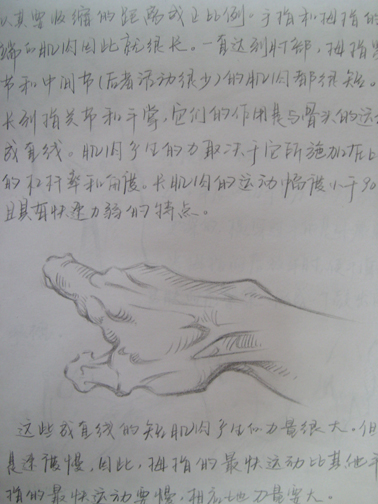 以其要收缩的距离成正比例。手指和拇指的
端的肌肉因此就很长。一直达到肘部，拇指掌
节和中间节(后者活动很少)的肌肉都很短。
长到指关节和手掌，它们的作用是与骨头的运
成直线。肌肉产生的力取决于它所施加在
的杠杆率和角度。长肌肉的运动幅度小于90
且具有快速力弱的特点。
这些成直线的短肌肉产生的力量很大。但
是速度慢，因此，拇指的最快运动比其他手
指的最快运动要慢，相应地力量要大。